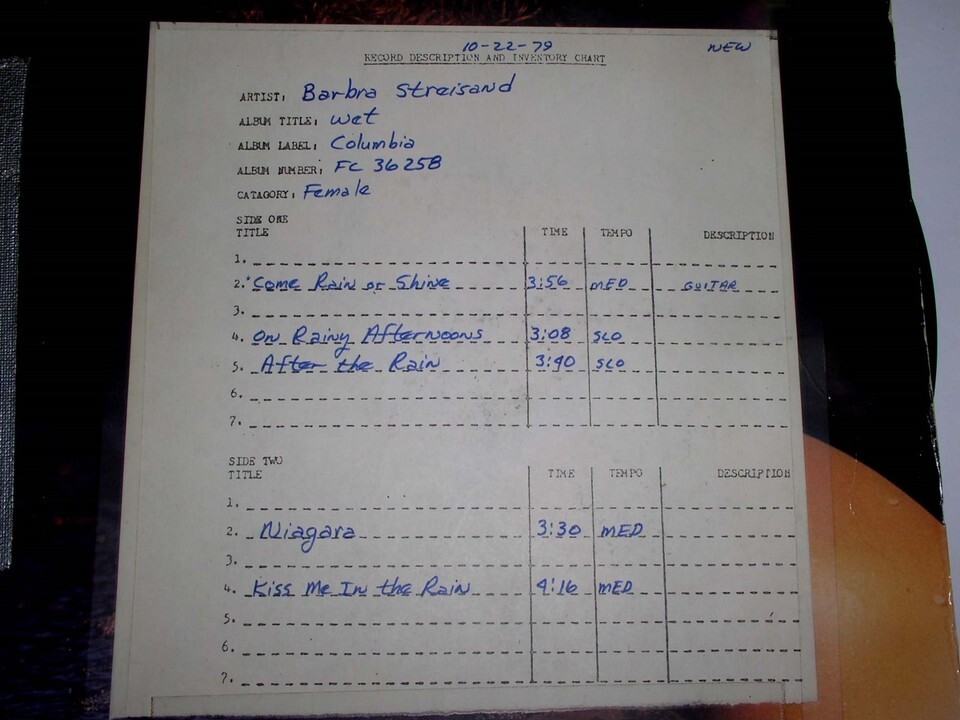 10-22-79 NEW
RECORD DESCRIPTION AND INVENTORY CHART
ARTIST: Barbra Streisand
ALBUM TITLE: Wet
ALBUM LABEL: Columbia
ALBUM NUMBER: FC 36258
CATAGORY: Female
SIDE ONE
TITLE TIME TEMPO DESCRIPTION
1.
2. Come Rain or Shine 3:56 MED GUITAR
3.
4. On Rainy Afternoons 3:08 SLO
5. After the Rain 3:40 SLO
6.
7.
SIDE TWO
TITLE TIME TEMPO DESCRIPTION
1.
2. Niagara 3:30 MED
3.
4. Kiss Me In the Rain 4:16 MED
5.
6.
7.